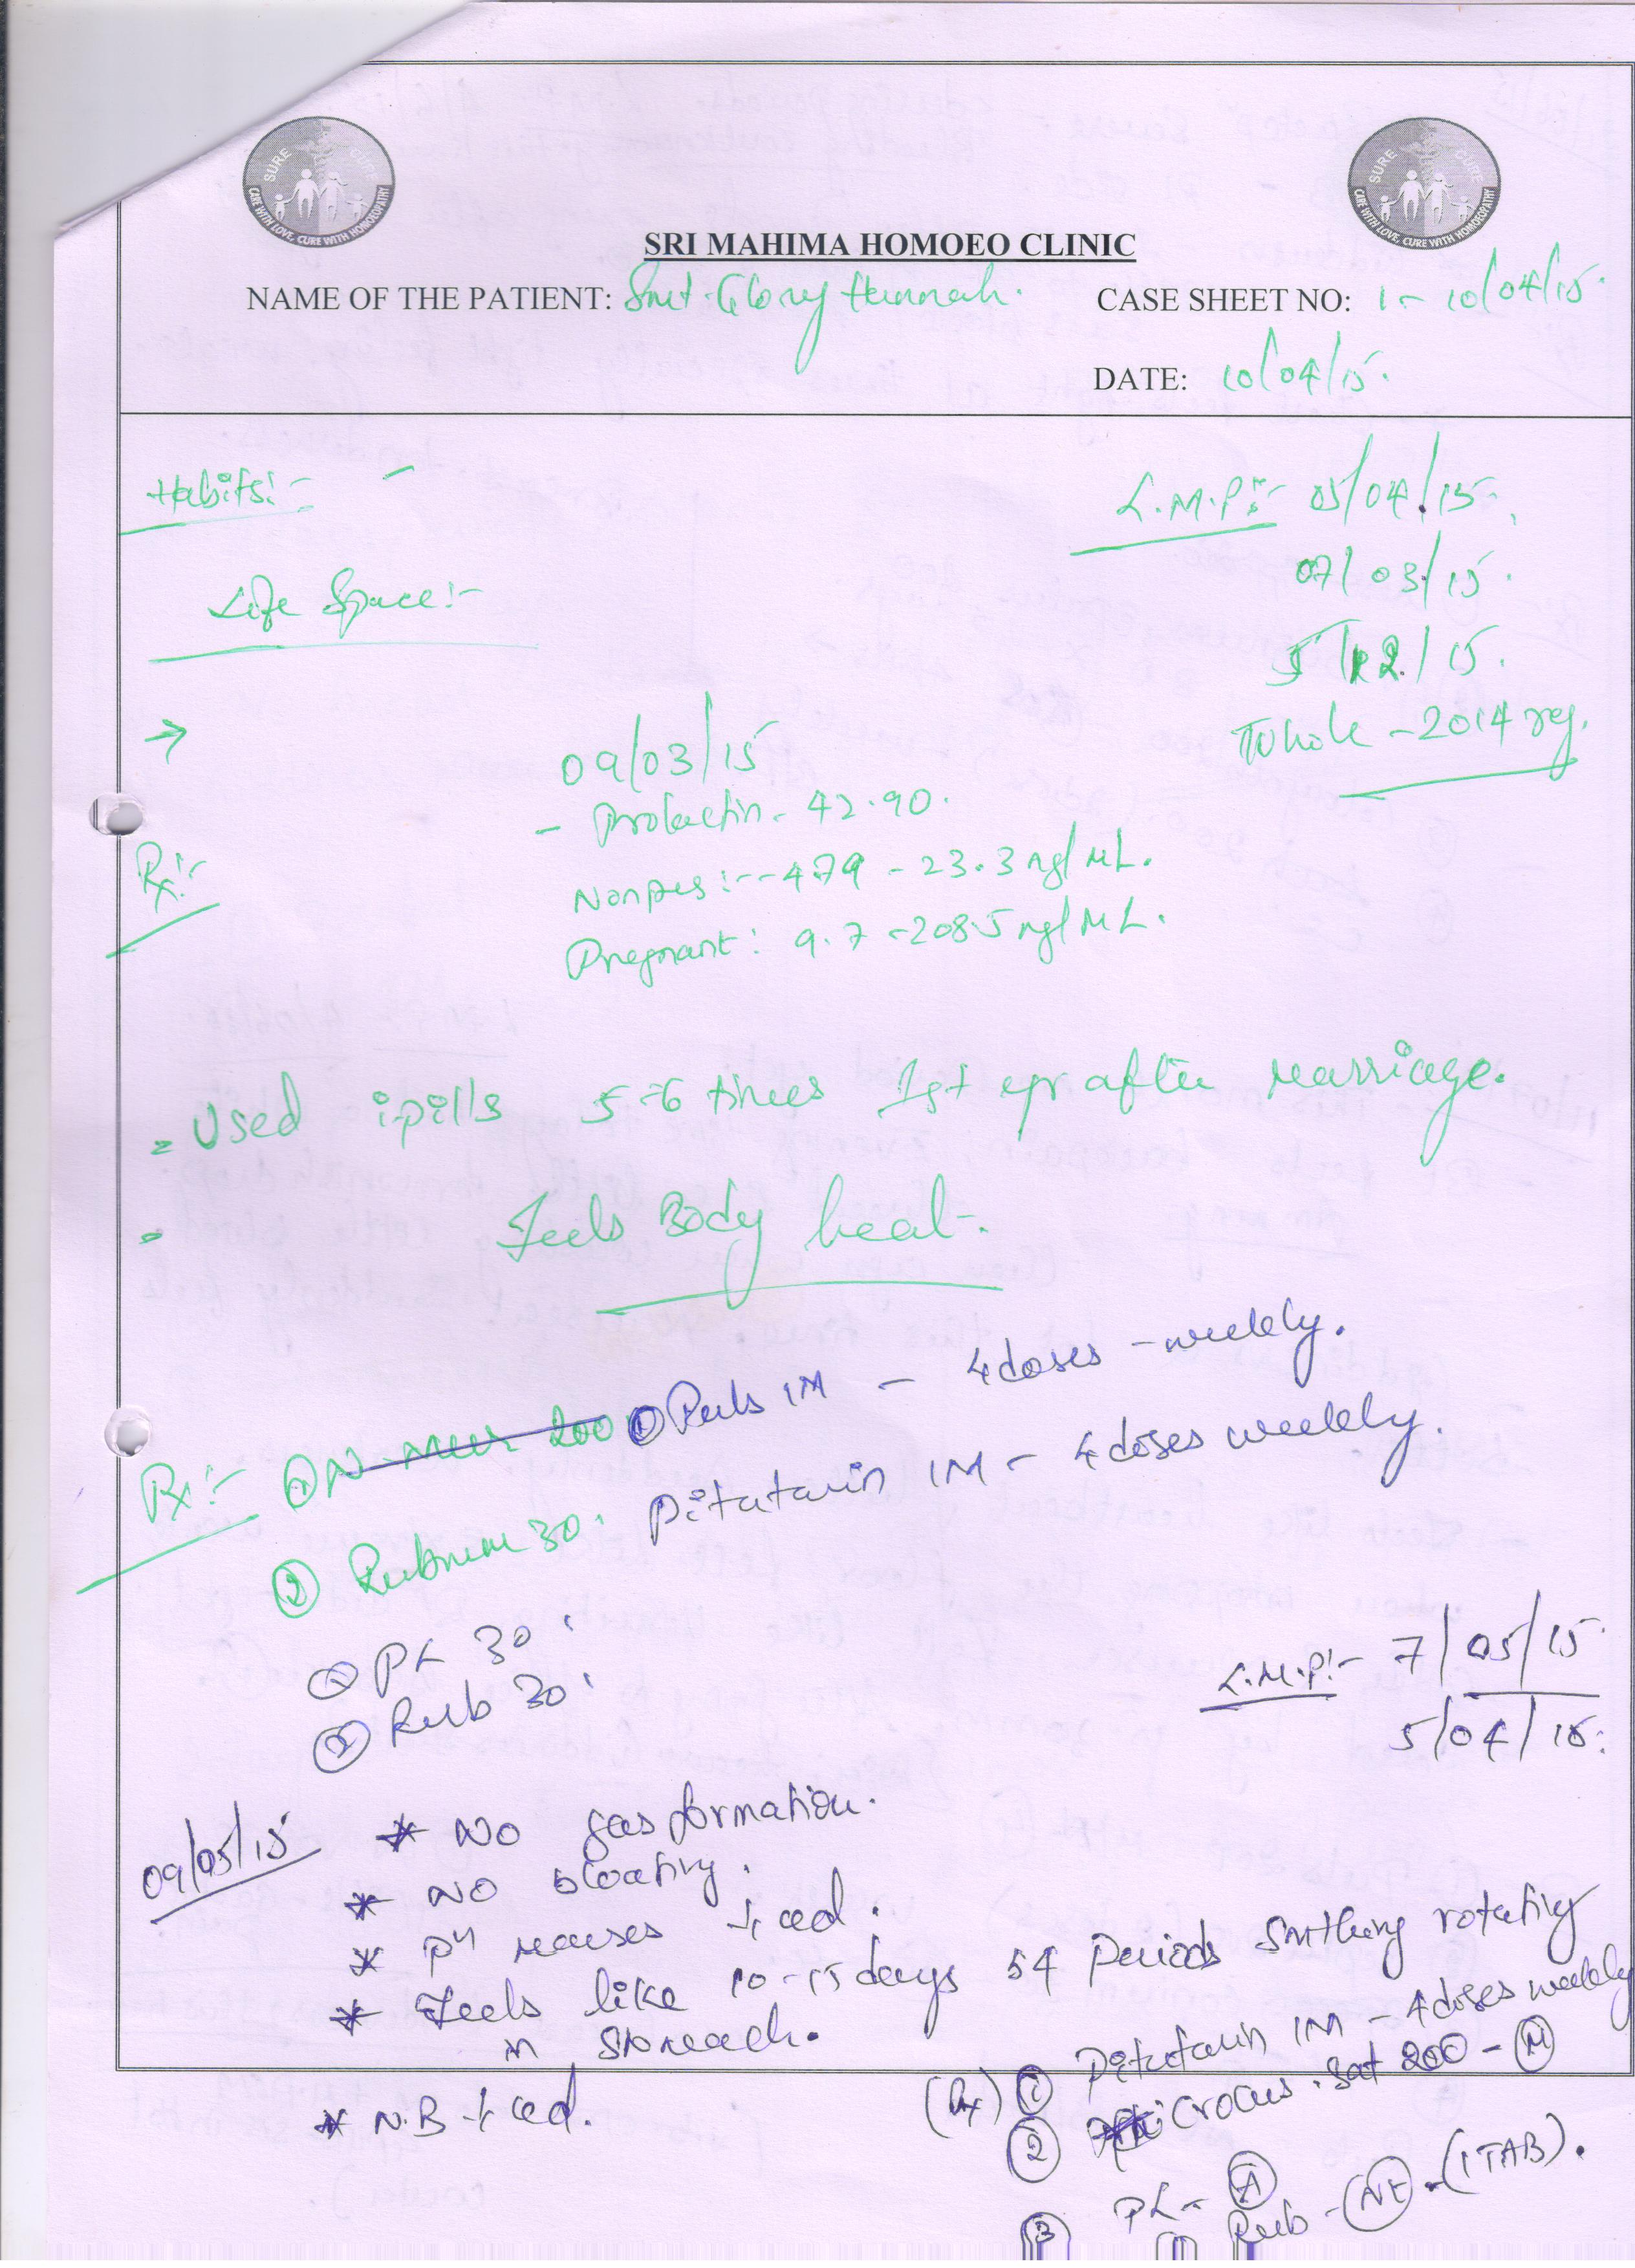 SURE CURE
CARE WITH LOVE, CURE WITH HOMOEOPATHY
SURE CURE
CARE WITH LOVE, CURE WITH HOMOEOPATHY
SRI MAHIMA HOMOEO CLINIC
NAME OF THE PATIENT: Smt. Glory Hannah. CASE SHEET NO: 1 - 10/04/15.
DATE: 10/04/15.
Habits:- -
L.M.P:- 05/04/15.
07/03/15.
Life Space:-
5/2/15.
Whole - 2014 reg.
→
09/03/15
- Prolactin - 42.90.
Rx:-
Nonpreg:-- 4.79 - 23.3 ng/ML.
Pregnant: 9.7 - 208.5 ng/ML.
- Used ipills 5-6 times 1st yr after marriage.
- Feels Body heat-.
① Puls 1M - 4 doses - weekly.
Rx:- ① N- Mur 200
② Rubrum 30. Pitutarin 1M - 4 doses weekly.
① PL 30.
② Rub 30.
L.M.P:- 7/05/15
5/04/15.
09/05/15 * No gas formation.
* No bloating.
* ↓ced.
* Feels like 10-15 days b4 Periods Smthing rotating
in stomach.
* N.B ↓ced.
(Rx) ① Pitutarin 1M - 4 doses weekly
② Crocus. Sat 200 - (M)
③ PL - (A)
Rub - (Nt) - (1 TAB).